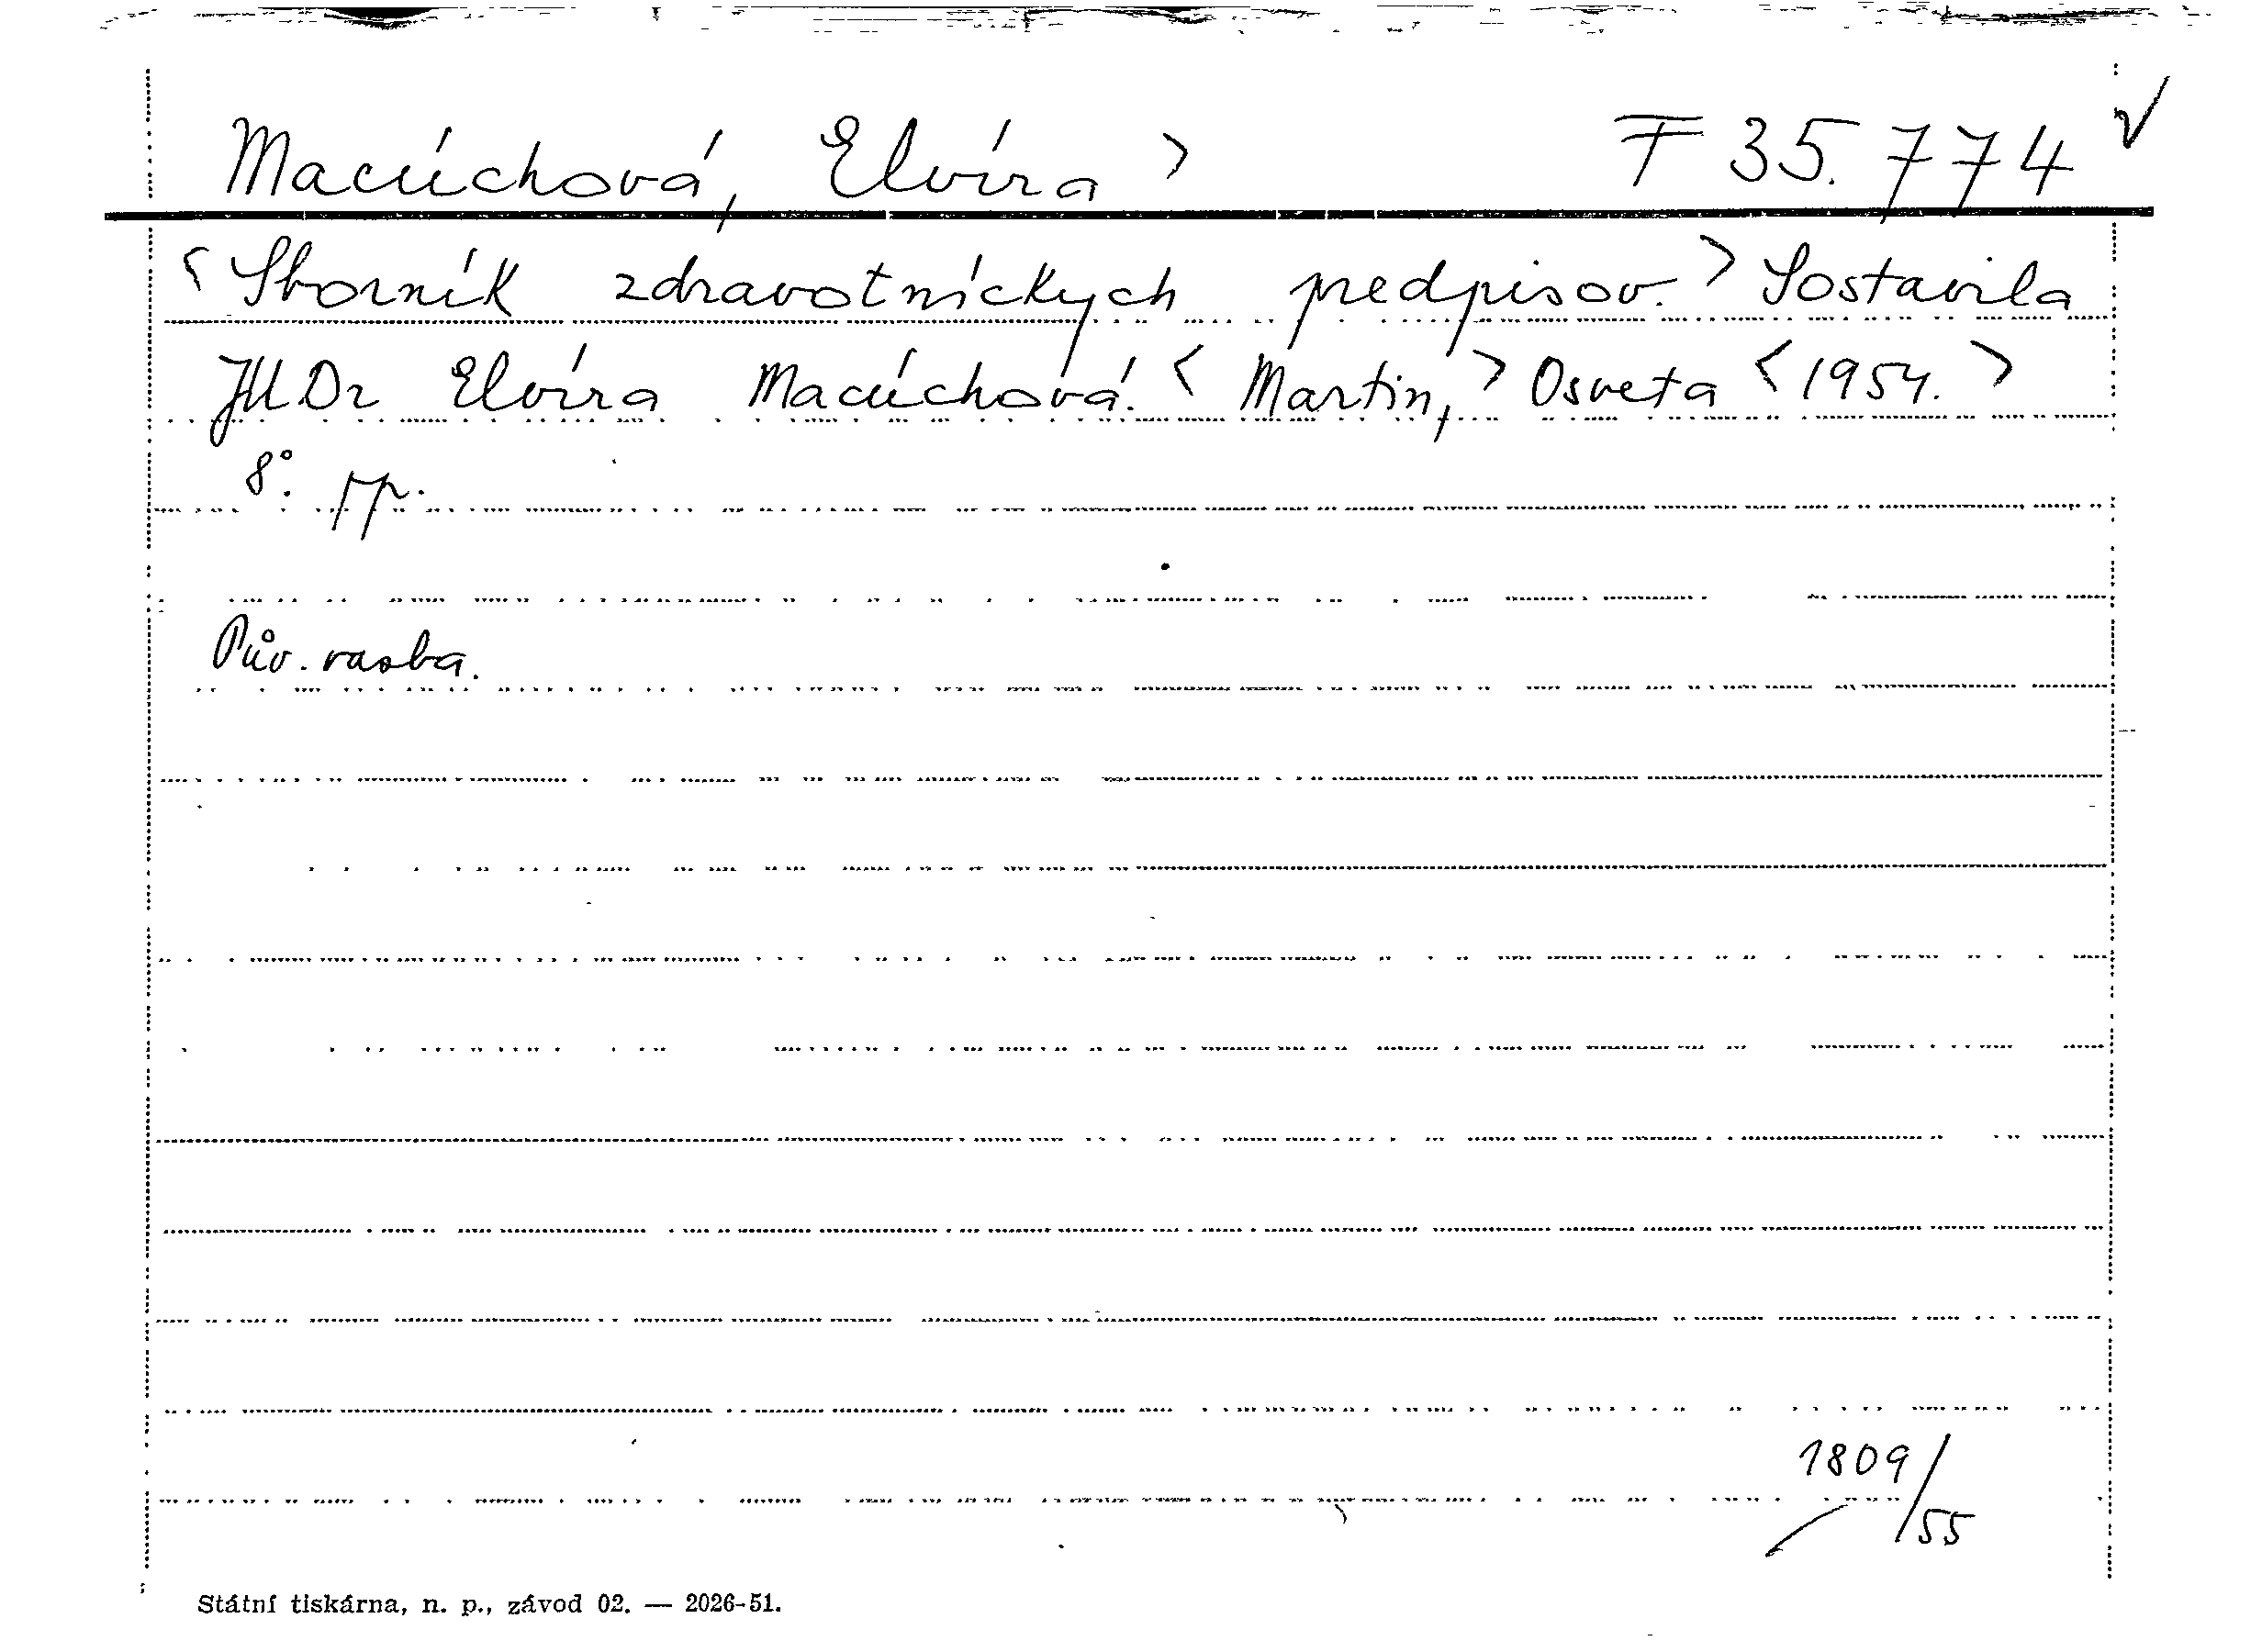 Macúchová, Elvíra > F 35.774 √
<Sborník zdravotníckych predpisov.> Sostavila
JUDr Elvíra Macúchová. <Martin,> Osveta <1954.>
8°. pp.
Pův. vazba.
1809/55
Státní tiskárna, n. p., závod 02. — 2026-51.